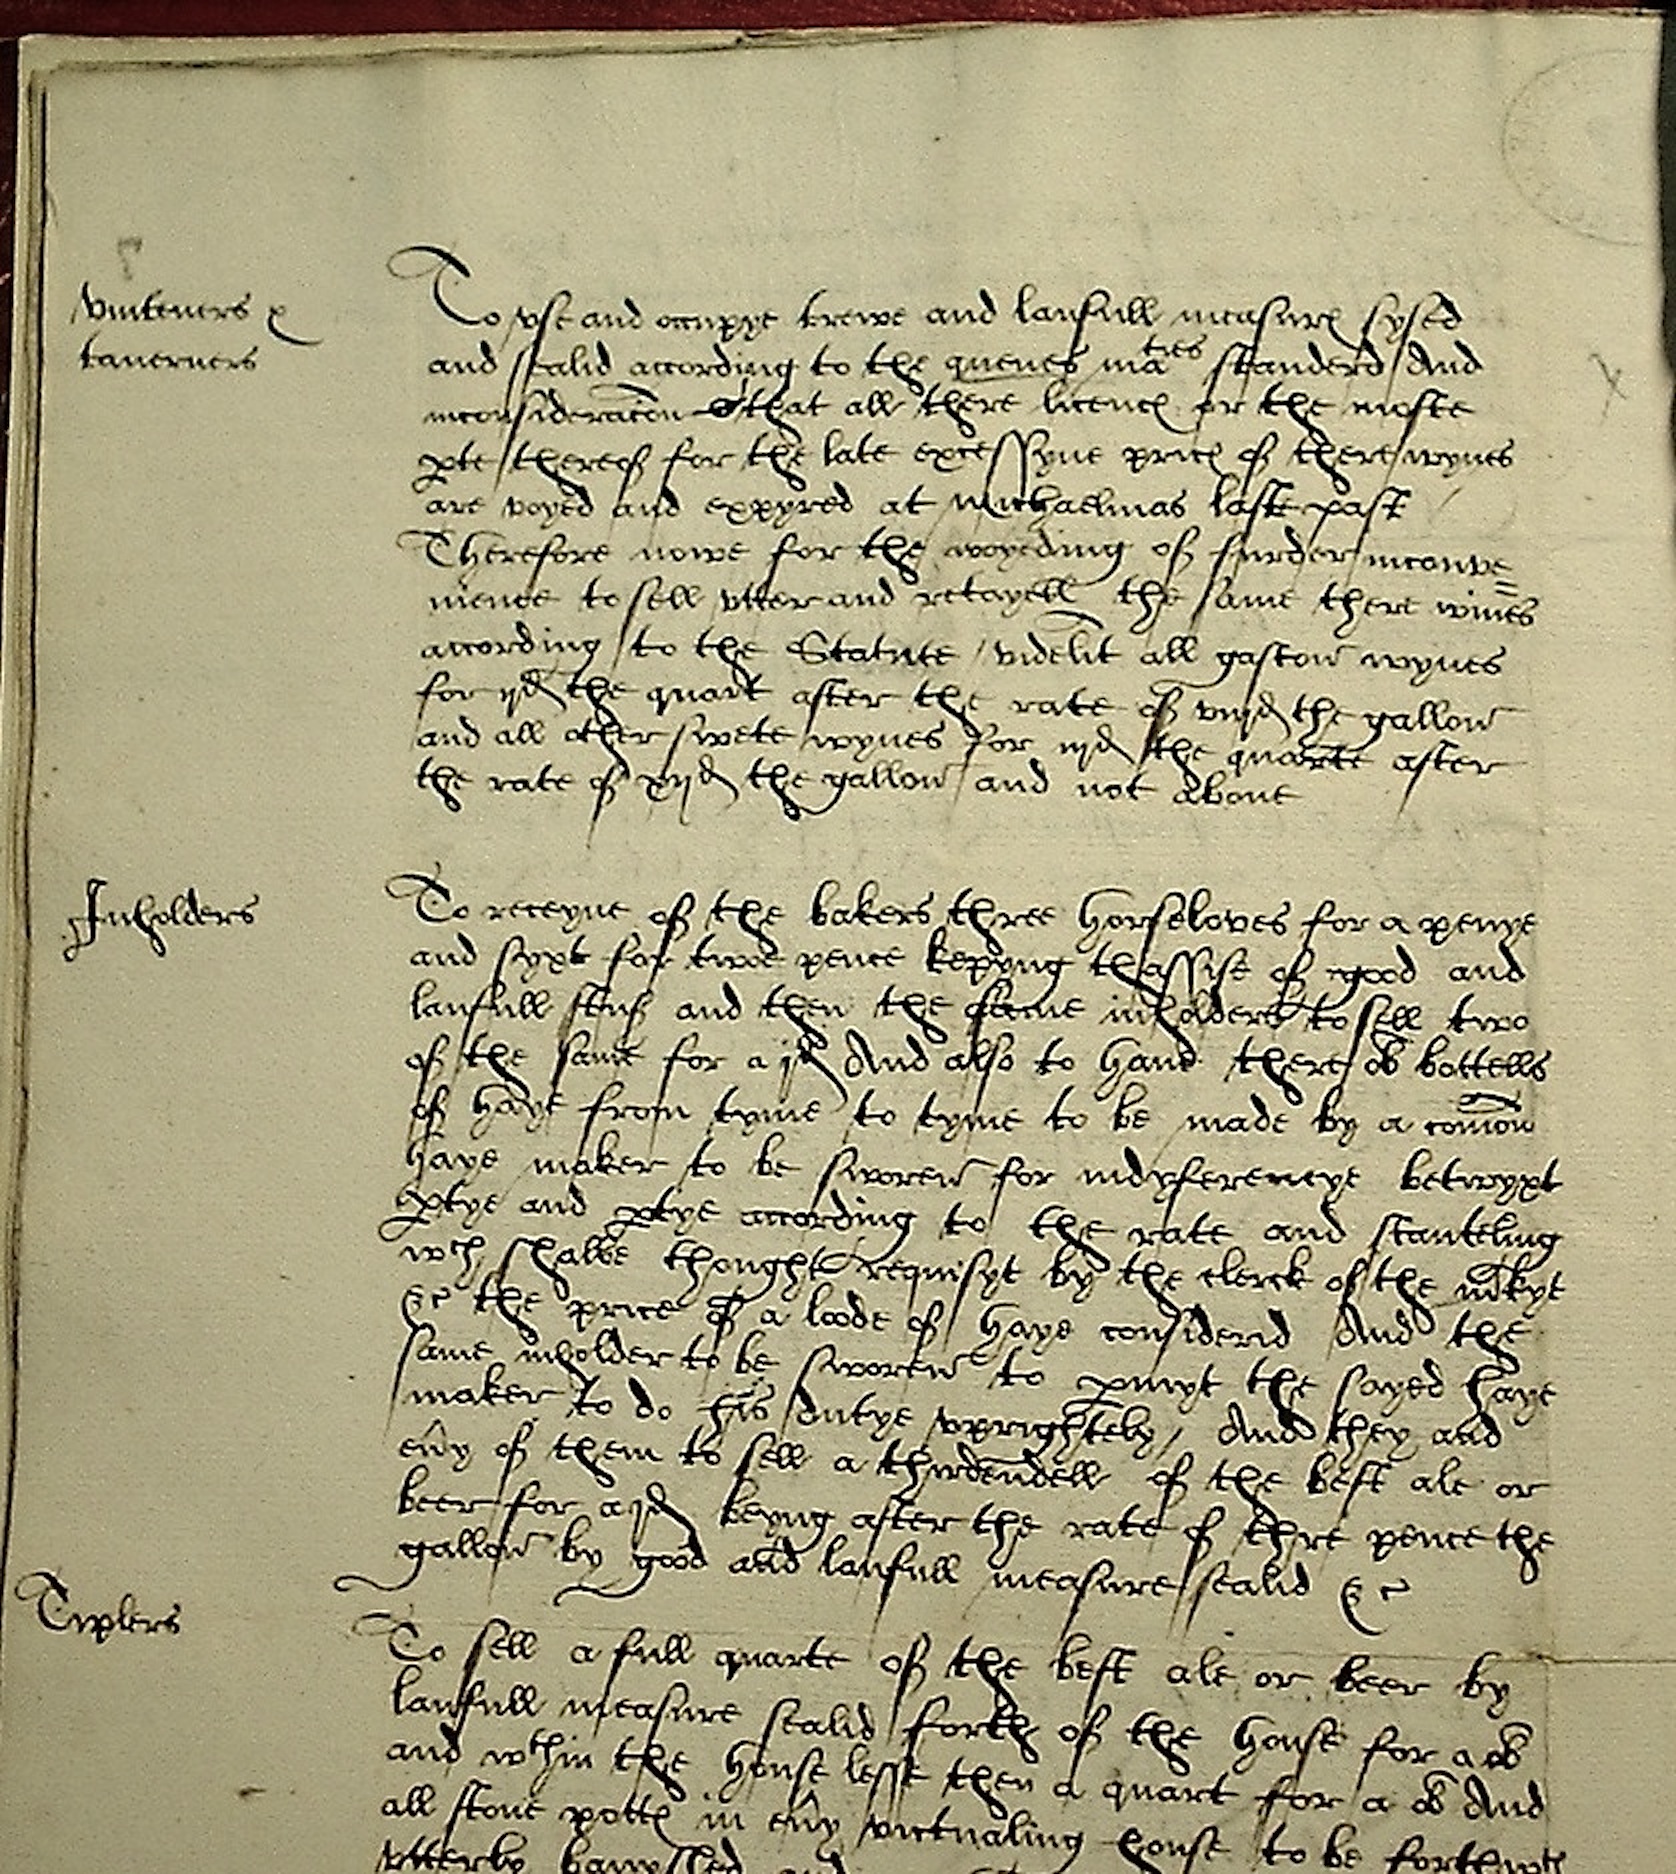 Vinteners &
tauerners
To vse and occupye trewe and laufull measures sysed
and sealid according to the quenes maties standerd And
inconsideracon that all there licences or the moste
pte thereof for the late excessyue prices of there wynes
are voyed and expyred at Michaelmas last past
Therefore nowe for the woyeding of furder inconve=
nience to sell vtter and retayell the same there wines
according to the Statute videlit all gascon wynes
for ijd the quart after the rate of viijd the gallon
and all other swete wynes for iijd the quarte after
the rate of xijd the gallon and not aboue
Inholders
To receyue of the bakers three horseloves for a penye
and syxt for twoe pence kepyng thassise of good and
laufull stuf and then the same inholders to sell two
of the same for a jd And also to haue there ob bottells
of haye from tyme to tyme to be made by a comon
haye maker to be sworen for indyferencye betwyxt
ptye and ptye according to the rate and scanteling
wch shalbe thought requisyt by the clerck of the mkyt
&c the price of a loode of haye considerid And the
same inholder to be sworen to pmyt the sayed haye
maker to do his dutye vprightely / And they and
euy of them to sell a thirdendell of the best ale or
beer for a jd beyng after the rate of thre pence the
gallon by good and laufull measure sealid &c
Tiplers
To sell a full quarte of the best ale or beer by
laufull measure sealid forth of the house for a ob
and wthin the house lesse then a quart for a ob And
all stone pottes in euy victualing house to be forthwth
vtterly banyshed and